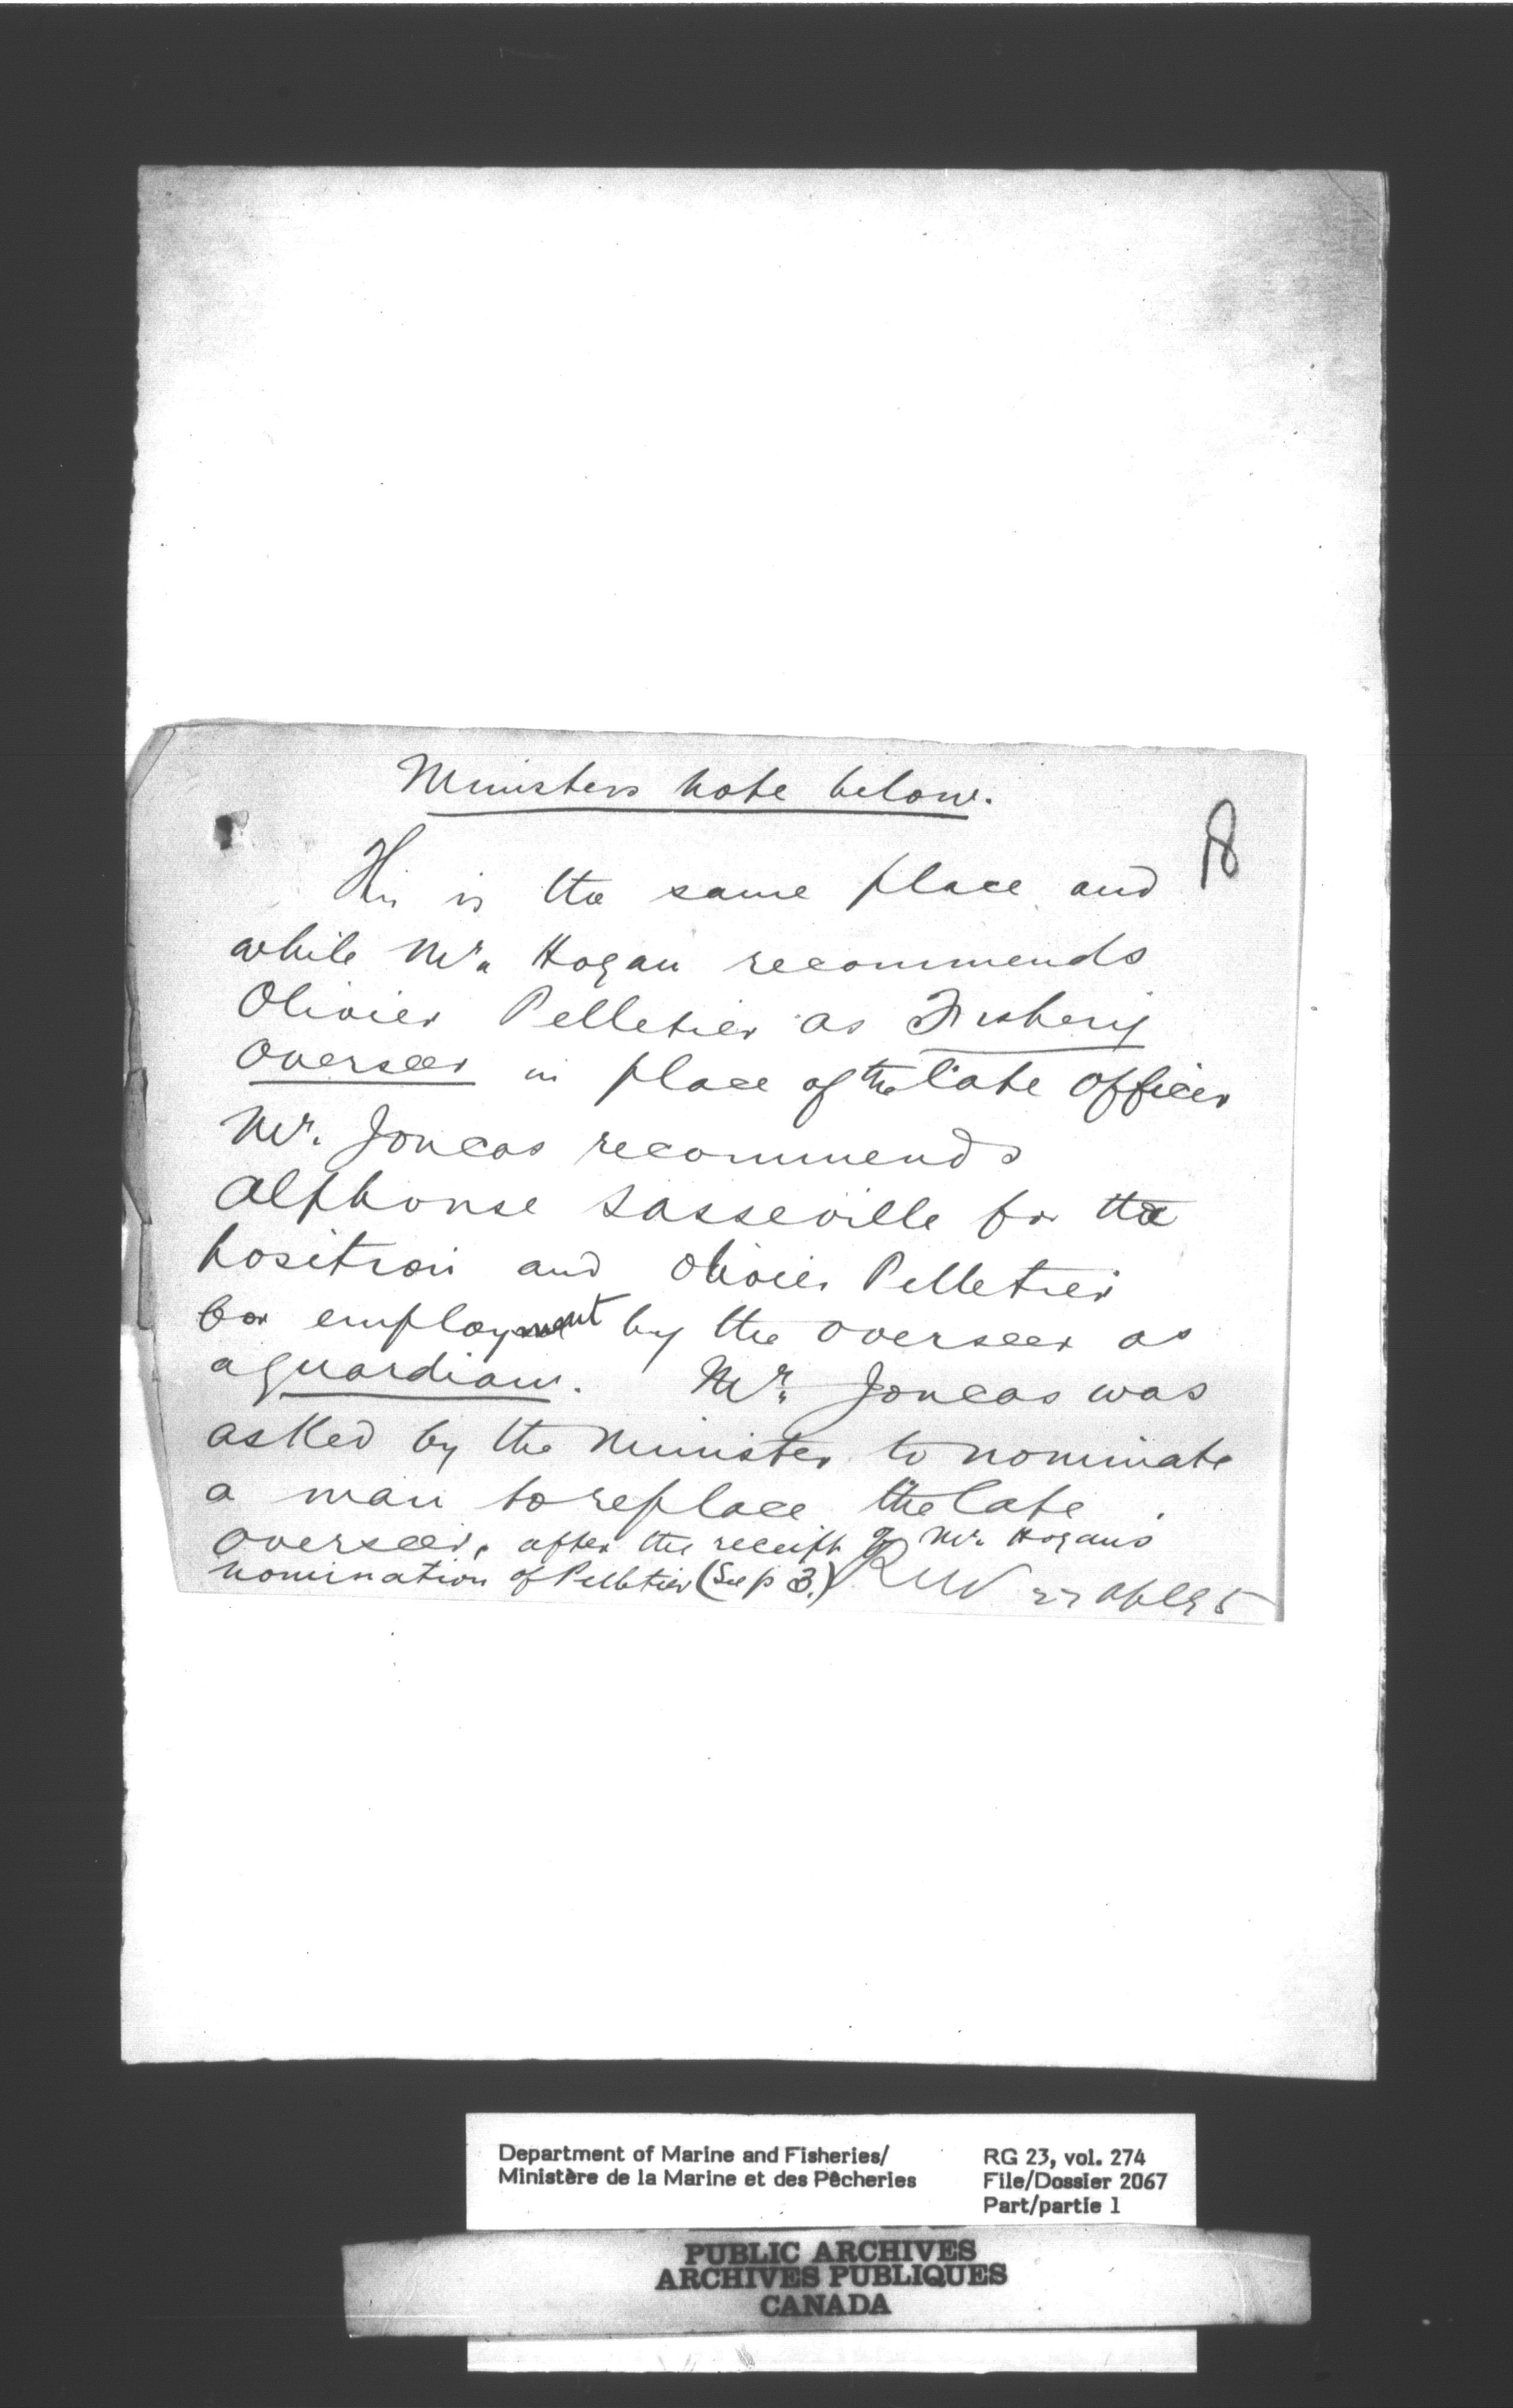 Ministers note below.
18
This is the same place and
while Mr. Hogan recommends
Olivier Pelletier as Fishery
Overseer in place of the late officer
Mr. Joncas recommends
Alphonse Sasseville for the
position and Olivier Pelletier
for employment by the overseer as
a guardian. Mr. Joncas was
asked by the Minister to nominate
a man to replace the late
overseer, after the receipt of Mr. Hogans
nomination of Pelletier (See p 3.) 27 Apl 95
Department of Marine and Fisheries/
Ministère de la Marine et des Pêcheries
RG 23, vol. 274
File/Dossier 2067
Part/partie 1
PUBLIC ARCHIVES
ARCHIVES PUBLIQUES
CANADA